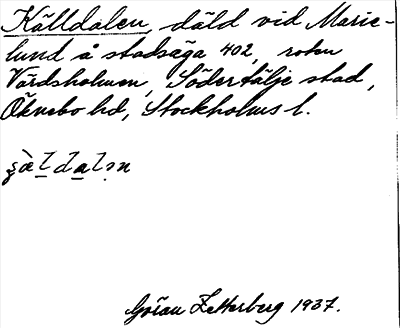 Källdalen, däld vid Marie-
lund å stadsäga 402, roten
Värdsholmen, Södertälje stad,
Öknebo hd, Stockholms l.
Göran Zetterberg 1937.